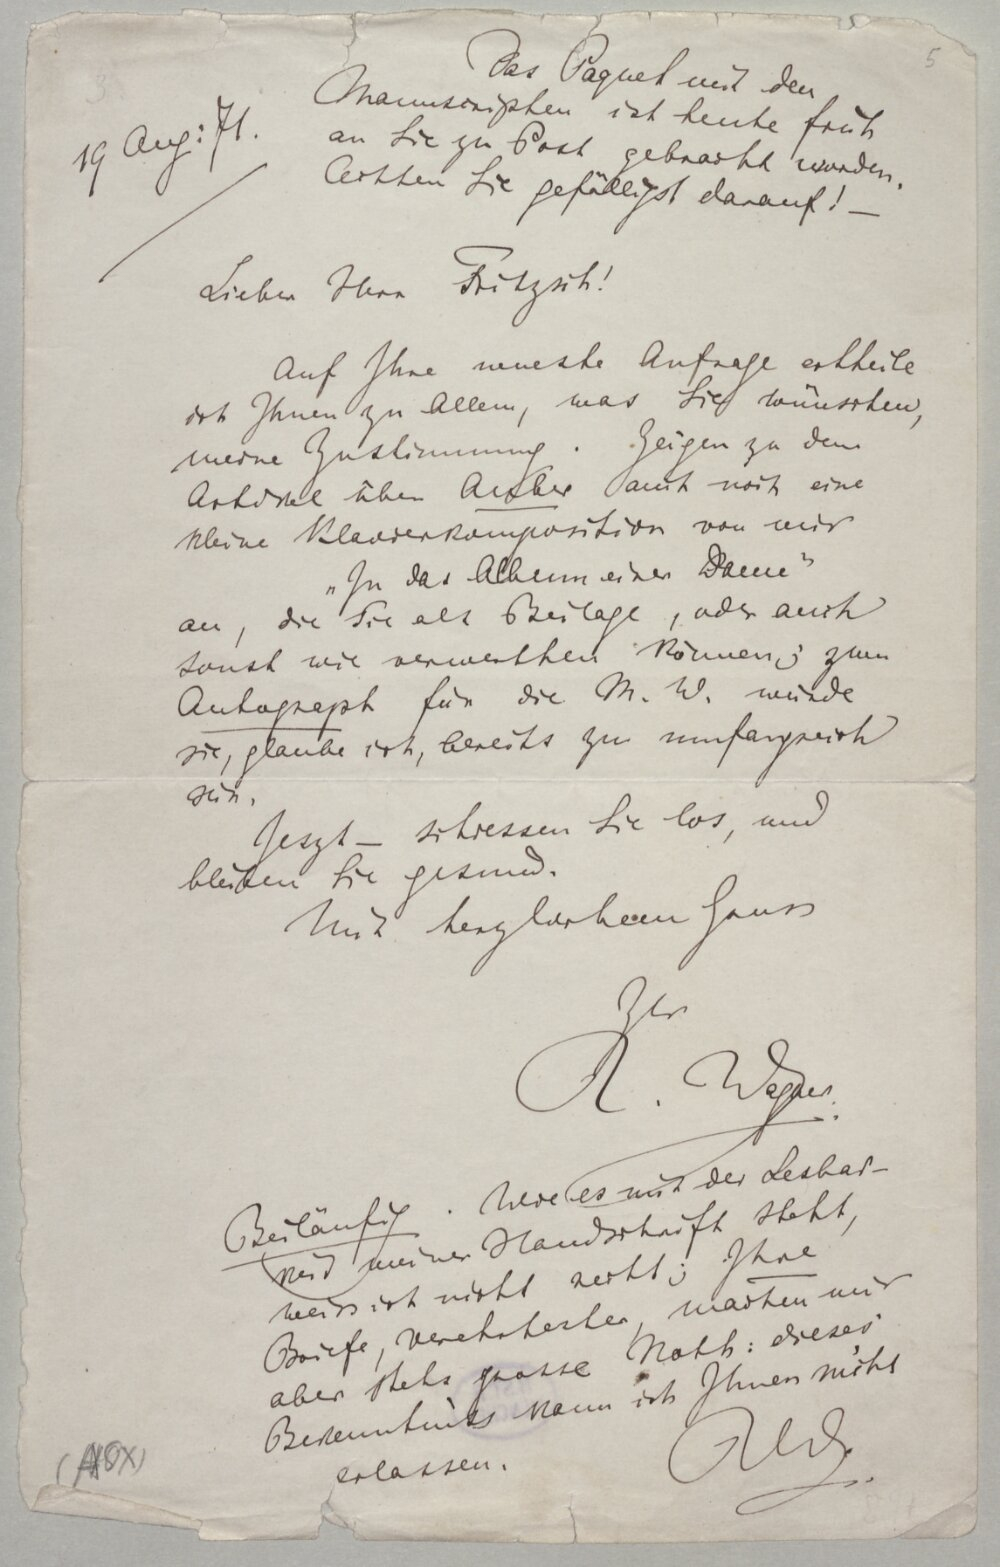 5
Das Paquet mit den
Manuscripten ist heute früh
an Sie zu Post gebracht worden.
Achten Sie gefälligst darauf! —
19 Aug: 71.
Lieber Herr Fritzsch!
Auf Ihre neueste Anfrage ertheile
ich Ihnen zu Allem, was Sie wünschen,
meine Zustimmung. Zeigen zu dem
Artikel über Auber auch noch eine
kleine Klavierkomposition von mir
„In das Album einer Dame"
an, die Sie als Beilage, oder auch
sonst wie verwerthen können; zum
Autograph für die M. W. würde
sie, glaube ich, bereits zu umfangreich
sein.
Jetzt — schiessen Sie los, und
bleiben Sie gesund.
Mit herzlichem Gruss
Ihr
R. Wagner.
Beiläufig. Wie es mit der Lesbar-
keit meiner Handschrift steht,
weiss ich nicht recht; Ihre
Briefe, verehrtester, machen mir
aber stets grosse Noth: dieses
Bekenntniss kann ich Ihnen nicht
erlassen.
RW.